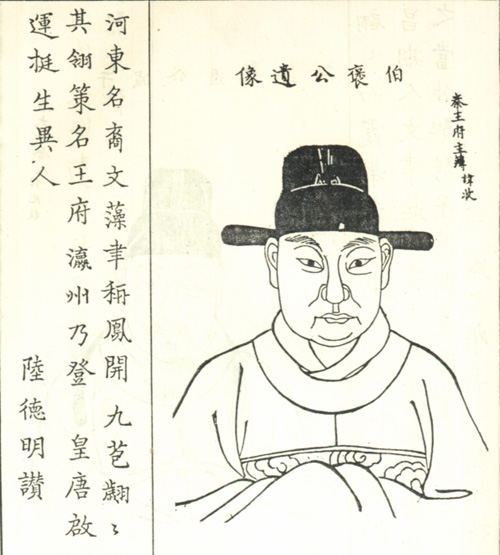 秦王府主簿 諱收
伯褒公遺像
河東名裔文藻聿称鳳開九苞翽〻
其翎策名王府瀛州乃登 皇唐啟
運挺生異人 陸德明讚